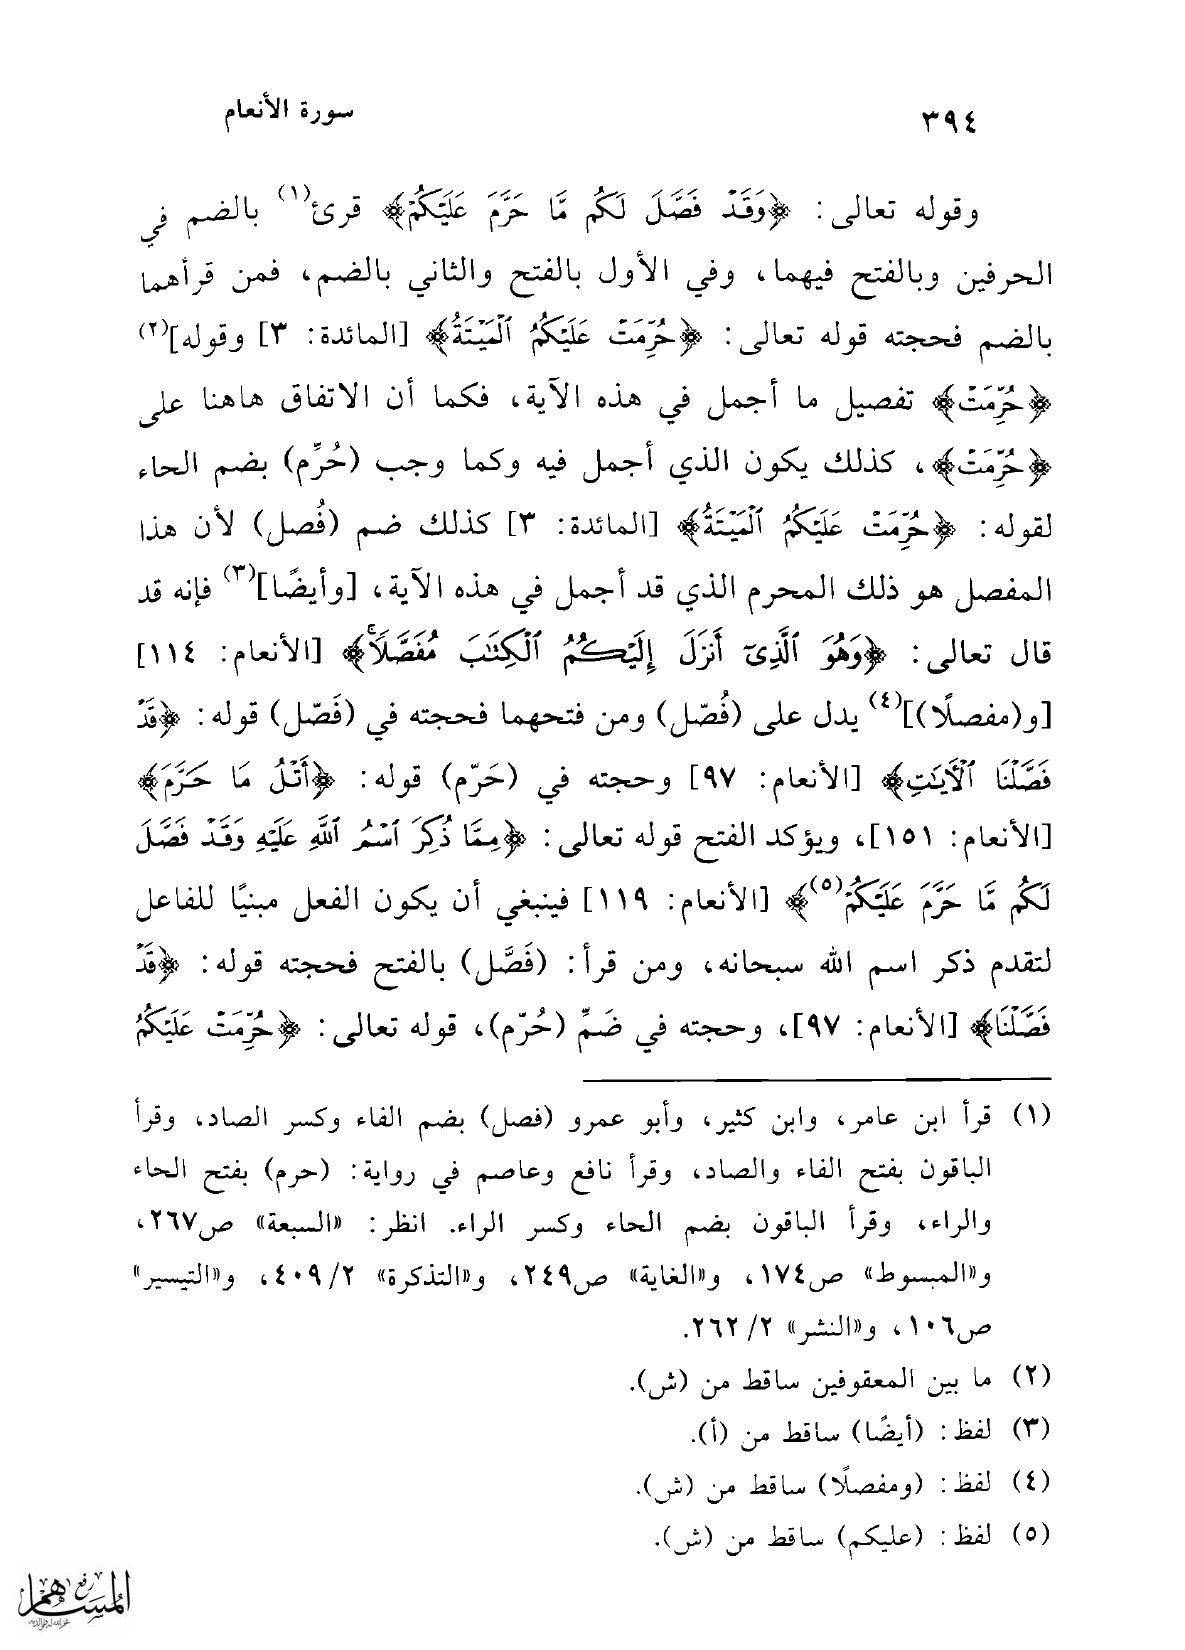 ٣٩٤
سورة الأنعام
وقوله تعالى: ﴿وَقَدْ فَصَّلَ لَكُم مَّا حَرَّمَ عَلَيْكُمْ﴾ قرئ(١) بالضم في
الحرفين وبالفتح فيهما، وفي الأول بالفتح والثاني بالضم، فمن قرأهما
بالضم فحجته قوله تعالى: ﴿حُرِّمَتْ عَلَيْكُمُ ٱلْمَيْتَةُ﴾ [المائدة: ٣] وقوله](٢)
﴿حُرِّمَتْ﴾ تفصيل ما أجمل في هذه الآية، فكما أن الاتفاق هاهنا على
﴿حُرِّمَتْ﴾، كذلك يكون الذي أجمل فيه وكما وجب (حُرِّم) بضم الحاء
لقوله: ﴿حُرِّمَتْ عَلَيْكُمُ ٱلْمَيْتَةُ﴾ [المائدة: ٣] كذلك ضم (فُصل) لأن هذا
المفصل هو ذلك المحرم الذي قد أجمل في هذه الآية، [وأيضًا](٣) فإنه قد
قال تعالى: ﴿وَهُوَ ٱلَّذِىٓ أَنزَلَ إِلَيْكُمُ ٱلْكِتَٰبَ مُفَصَّلًا﴾ [الأنعام: ١١٤]
[و(مفصلًا)](٤) يدل على (فُصّل) ومن فتحهما فحجته في (فَصّل) قوله: ﴿قَدْ
فَصَّلْنَا ٱلْأَيَٰتِ﴾ [الأنعام: ٩٧] وحجته في (حَرّم) قوله: ﴿أَتْلُ مَا حَرَّمَ﴾
[الأنعام: ١٥١]، ويؤكد الفتح قوله تعالى: ﴿مِمَّا ذُكِرَ ٱسْمُ ٱللَّهِ عَلَيْهِ وَقَدْ فَصَّلَ
لَكُم مَّا حَرَّمَ عَلَيْكُمْ(٥)﴾ [الأنعام: ١١٩] فينبغي أن يكون الفعل مبنيًا للفاعل
لتقدم ذكر اسم الله سبحانه، ومن قرأ: (فَصَّل) بالفتح فحجته قوله: ﴿قَدْ
فَصَّلْنَا﴾ [الأنعام: ٩٧]، وحجته في ضَمِّ (حُرّم)، قوله تعالى: ﴿حُرِّمَتْ عَلَيْكُمُ
(١) قرأ ابن عامر، وابن كثير، وأبو عمرو (فصل) بضم الفاء وكسر الصاد، وقرأ
الباقون بفتح الفاء والصاد، وقرأ نافع وعاصم في رواية: (حرم) بفتح الحاء
والراء، وقرأ الباقون بضم الحاء وكسر الراء. انظر: «السبعة» ص٢٦٧،
و«المبسوط» ص١٧٤، و«الغاية» ص٢٤٩، و«التذكرة» ٢/ ٤٠٩، و«التيسير»
ص١٠٦، و«النشر» ٢/ ٢٦٢.
(٢) ما بين المعقوفين ساقط من (ش).
(٣) لفظ: (أيضًا) ساقط من (أ).
(٤) لفظ: (ومفصلًا) ساقط من (ش).
(٥) لفظ: (عليكم) ساقط من (ش).